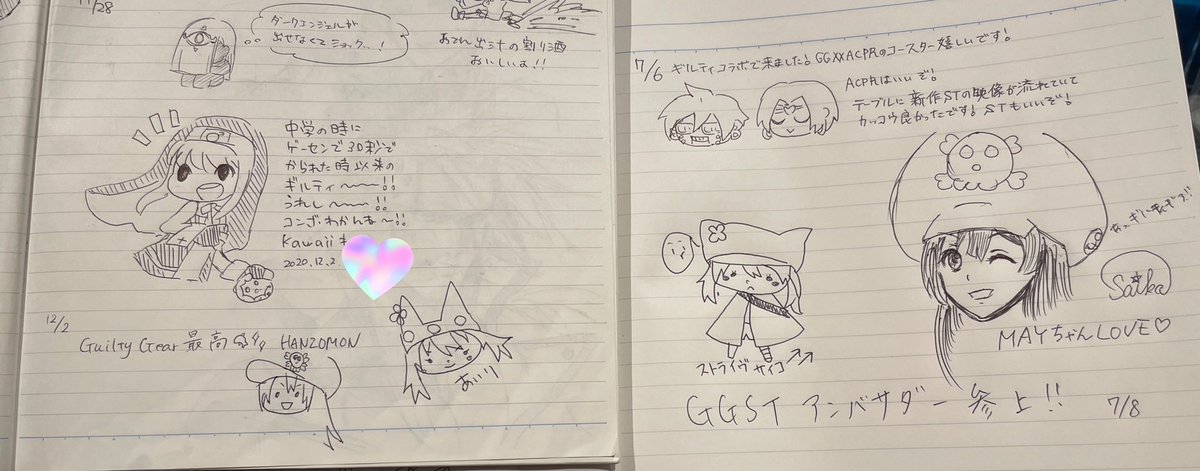 11/28
ダークエンジェルが
出せなくてショック…!
おでん出汁の割り酒
おいしいよ!!
中学の時に
ゲーセンで30秒で
かられた時以来の
ギルティ〜〜〜!!
うれし〜〜〜!!
コンボわかんね〜!!
Kawaii
2020.12.2
12/2
Guilty Gear 最高 HANZOMON
あいり
7/6 ギルティコラボで来ました! GGXXACPRのコースター嬉しいです!
ACPRはいいぞ!
テーブルに新作STの映像が流れていて
カッコウ良かったです! STもいいぞ!
Saika
MAYちゃんLOVE♡
ストライヴ サイコー
GGST アンバサダー 参上!! 7/8